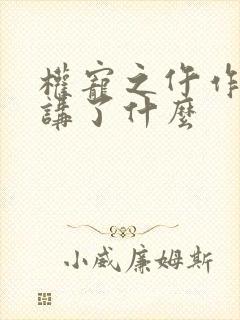 權寵之仵作
講了什麼
小威廉姆斯